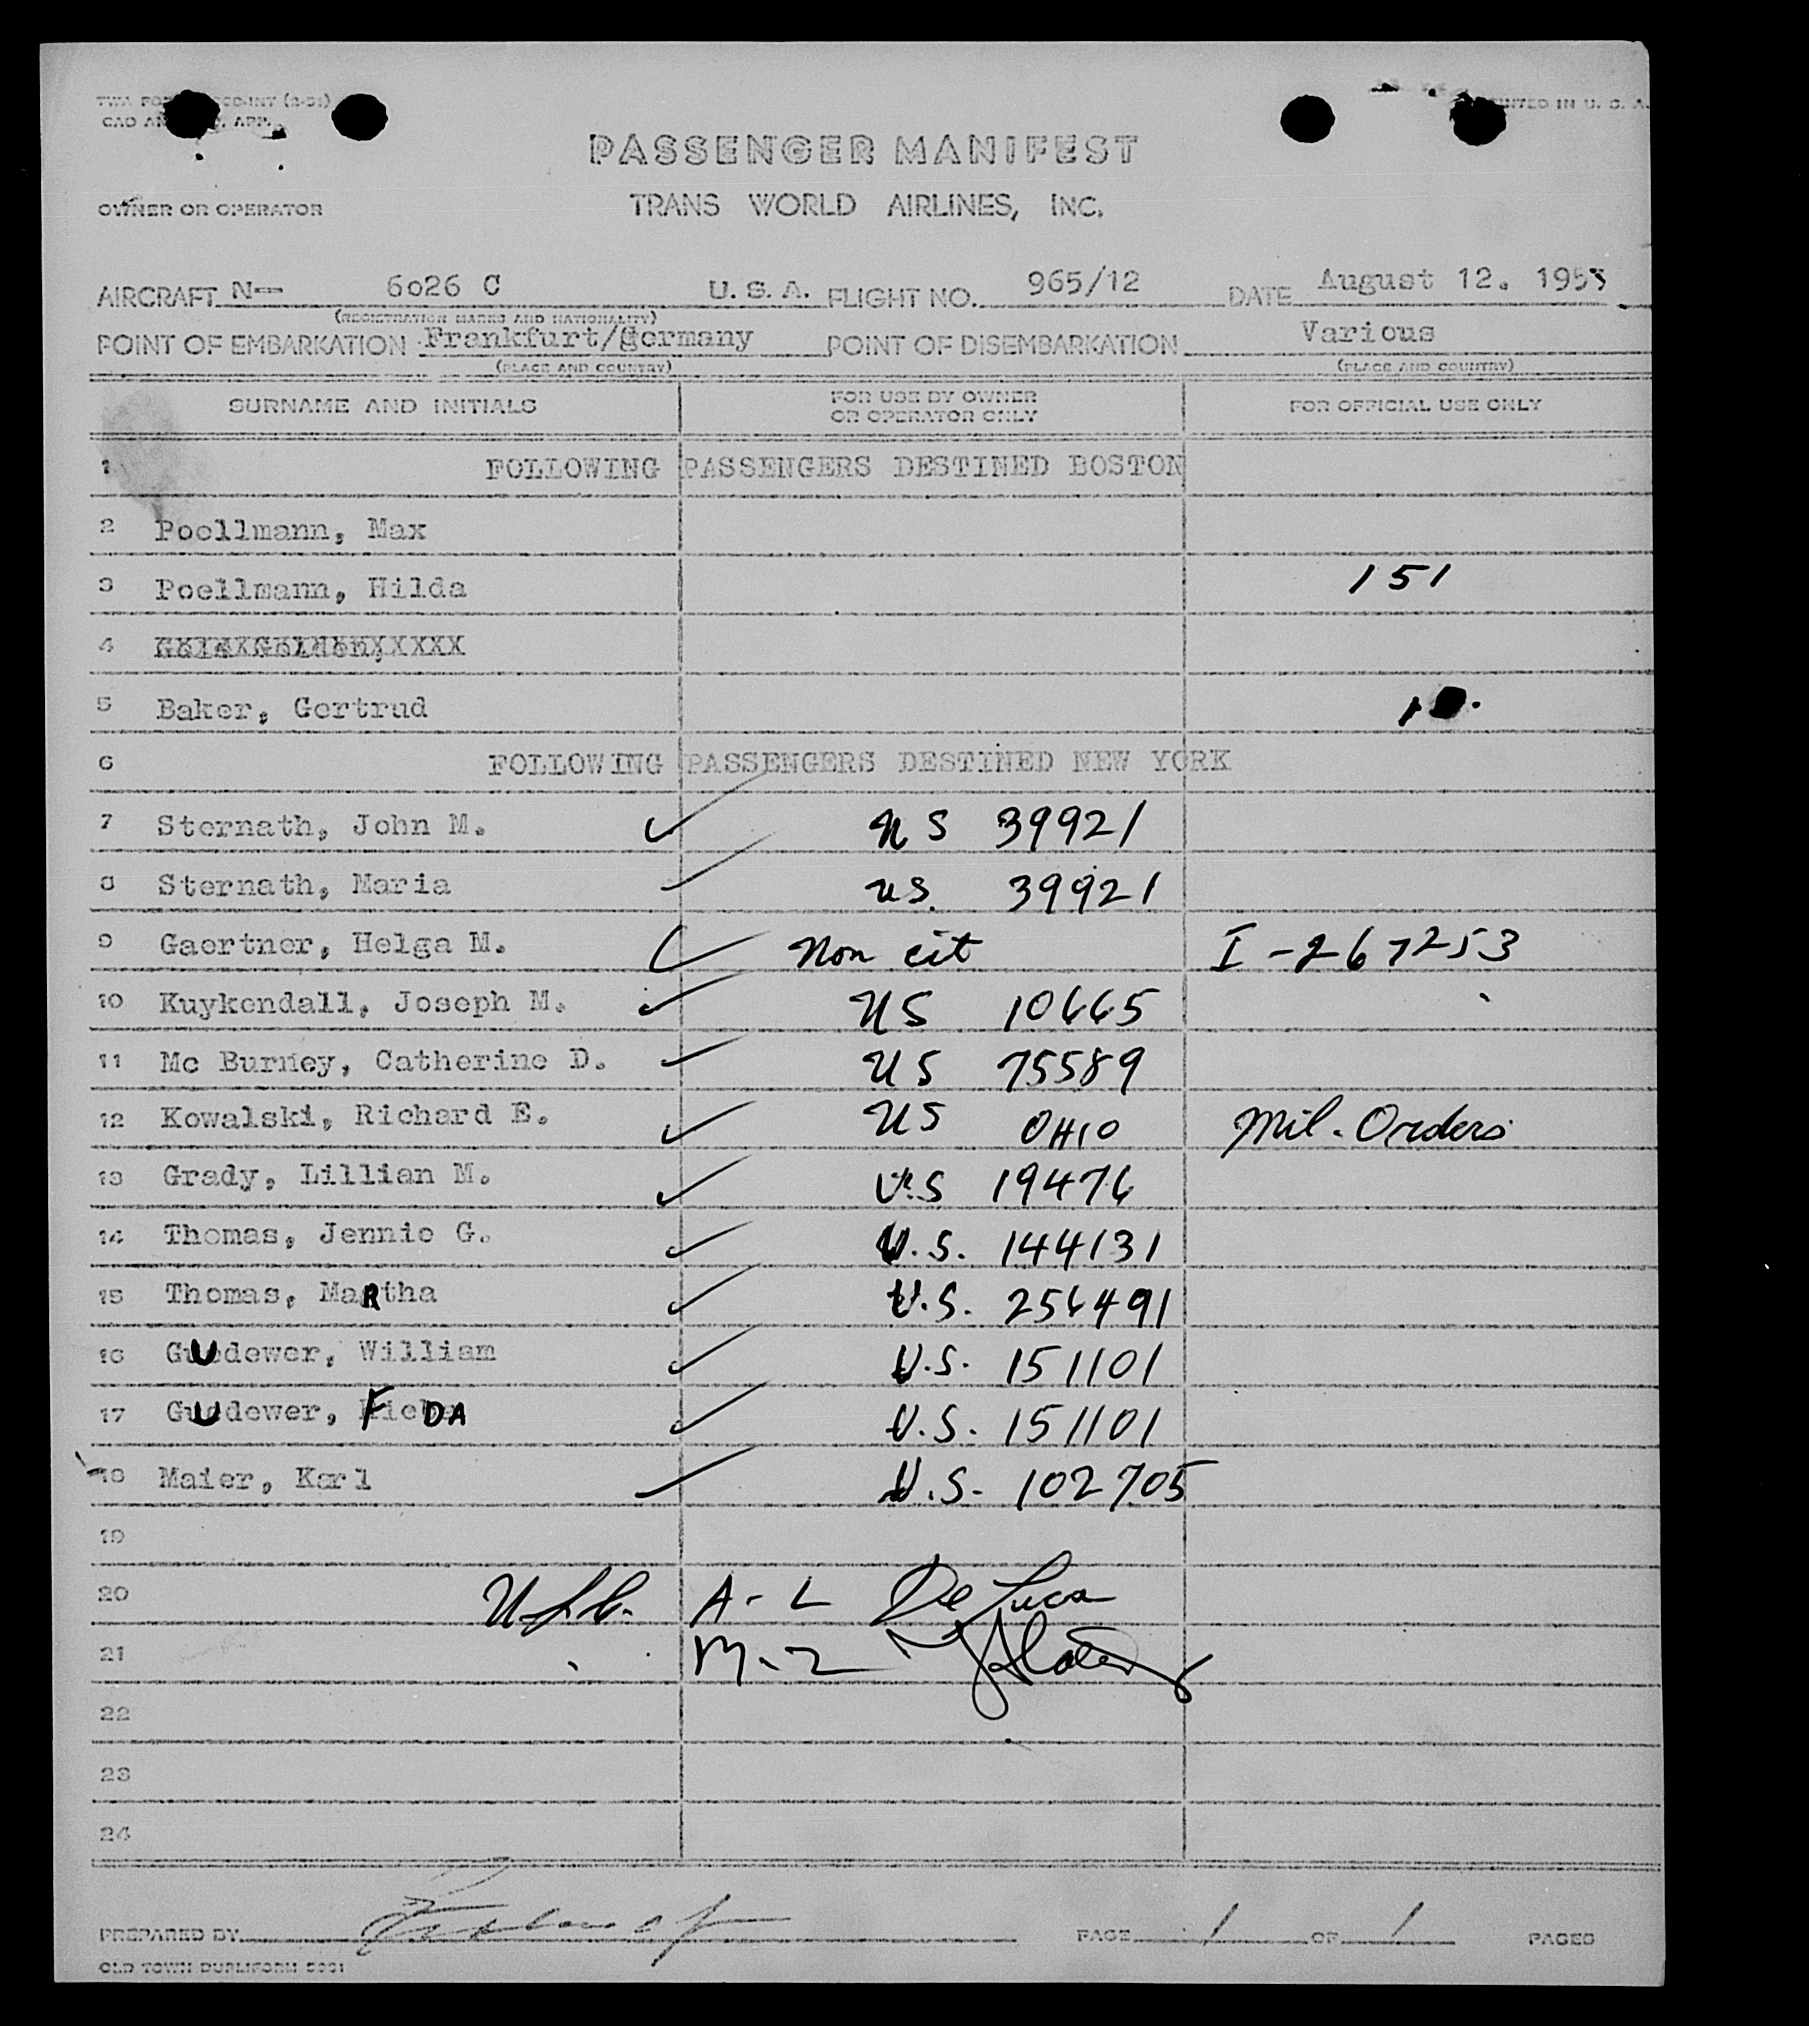 TWA FO CCD-INT (2-51) PRINTED IN U. S. A.
CAO AN APP.
PASSENGER MANIFEST
OWNER OR OPERATOR TRANS WORLD AIRLINES, INC.
AIRCRAFT N-- 6026 C U. S. A. FLIGHT NO. 965/12 DATE August 12. 1955
(REGISTRATION MARKS AND NATIONALITY)
POINT OF EMBARKATION Frankfurt/Germany POINT OF DISEMBARKATION Various
(PLACE AND COUNTRY) (PLACE AND COUNTRY)
SURNAME AND INITIALS FOR USE BY OWNER OR OPERATOR ONLY FOR OFFICIAL USE ONLY
1 FOLLOWING PASSENGERS DESTINED BOSTON
2 Poellmann, Max
3 Poellmann, Hilda 151
4
5 Baker, Gertrud
6 FOLLOWING PASSENGERS DESTINED NEW YORK
7 Sternath, John M. US 39921
8 Sternath, Maria US. 39921
9 Gaertner, Helga M. Non cit I-267253
10 Kuykendall, Joseph M. US 10665
11 Mc Burney, Catherine D. US 75589
12 Kowalski, Richard E. US OHIO Mil. Orders
13 Grady, Lillian M. U.S 19476
14 Thomas, Jennie G. U.S. 144131
15 Thomas, MaRtha U.S. 256491
16 GUedewer, William U.S. 151101
17 GUedewer, FieDA U.S. 151101
18 Maier, Karl U.S. 102705
19
20 A-L De Luca
21 M-Z
22
23
24
PREPARED BY PAGE 1 OF 1 PAGES
OLD TOWN DUPLIFORM 5001